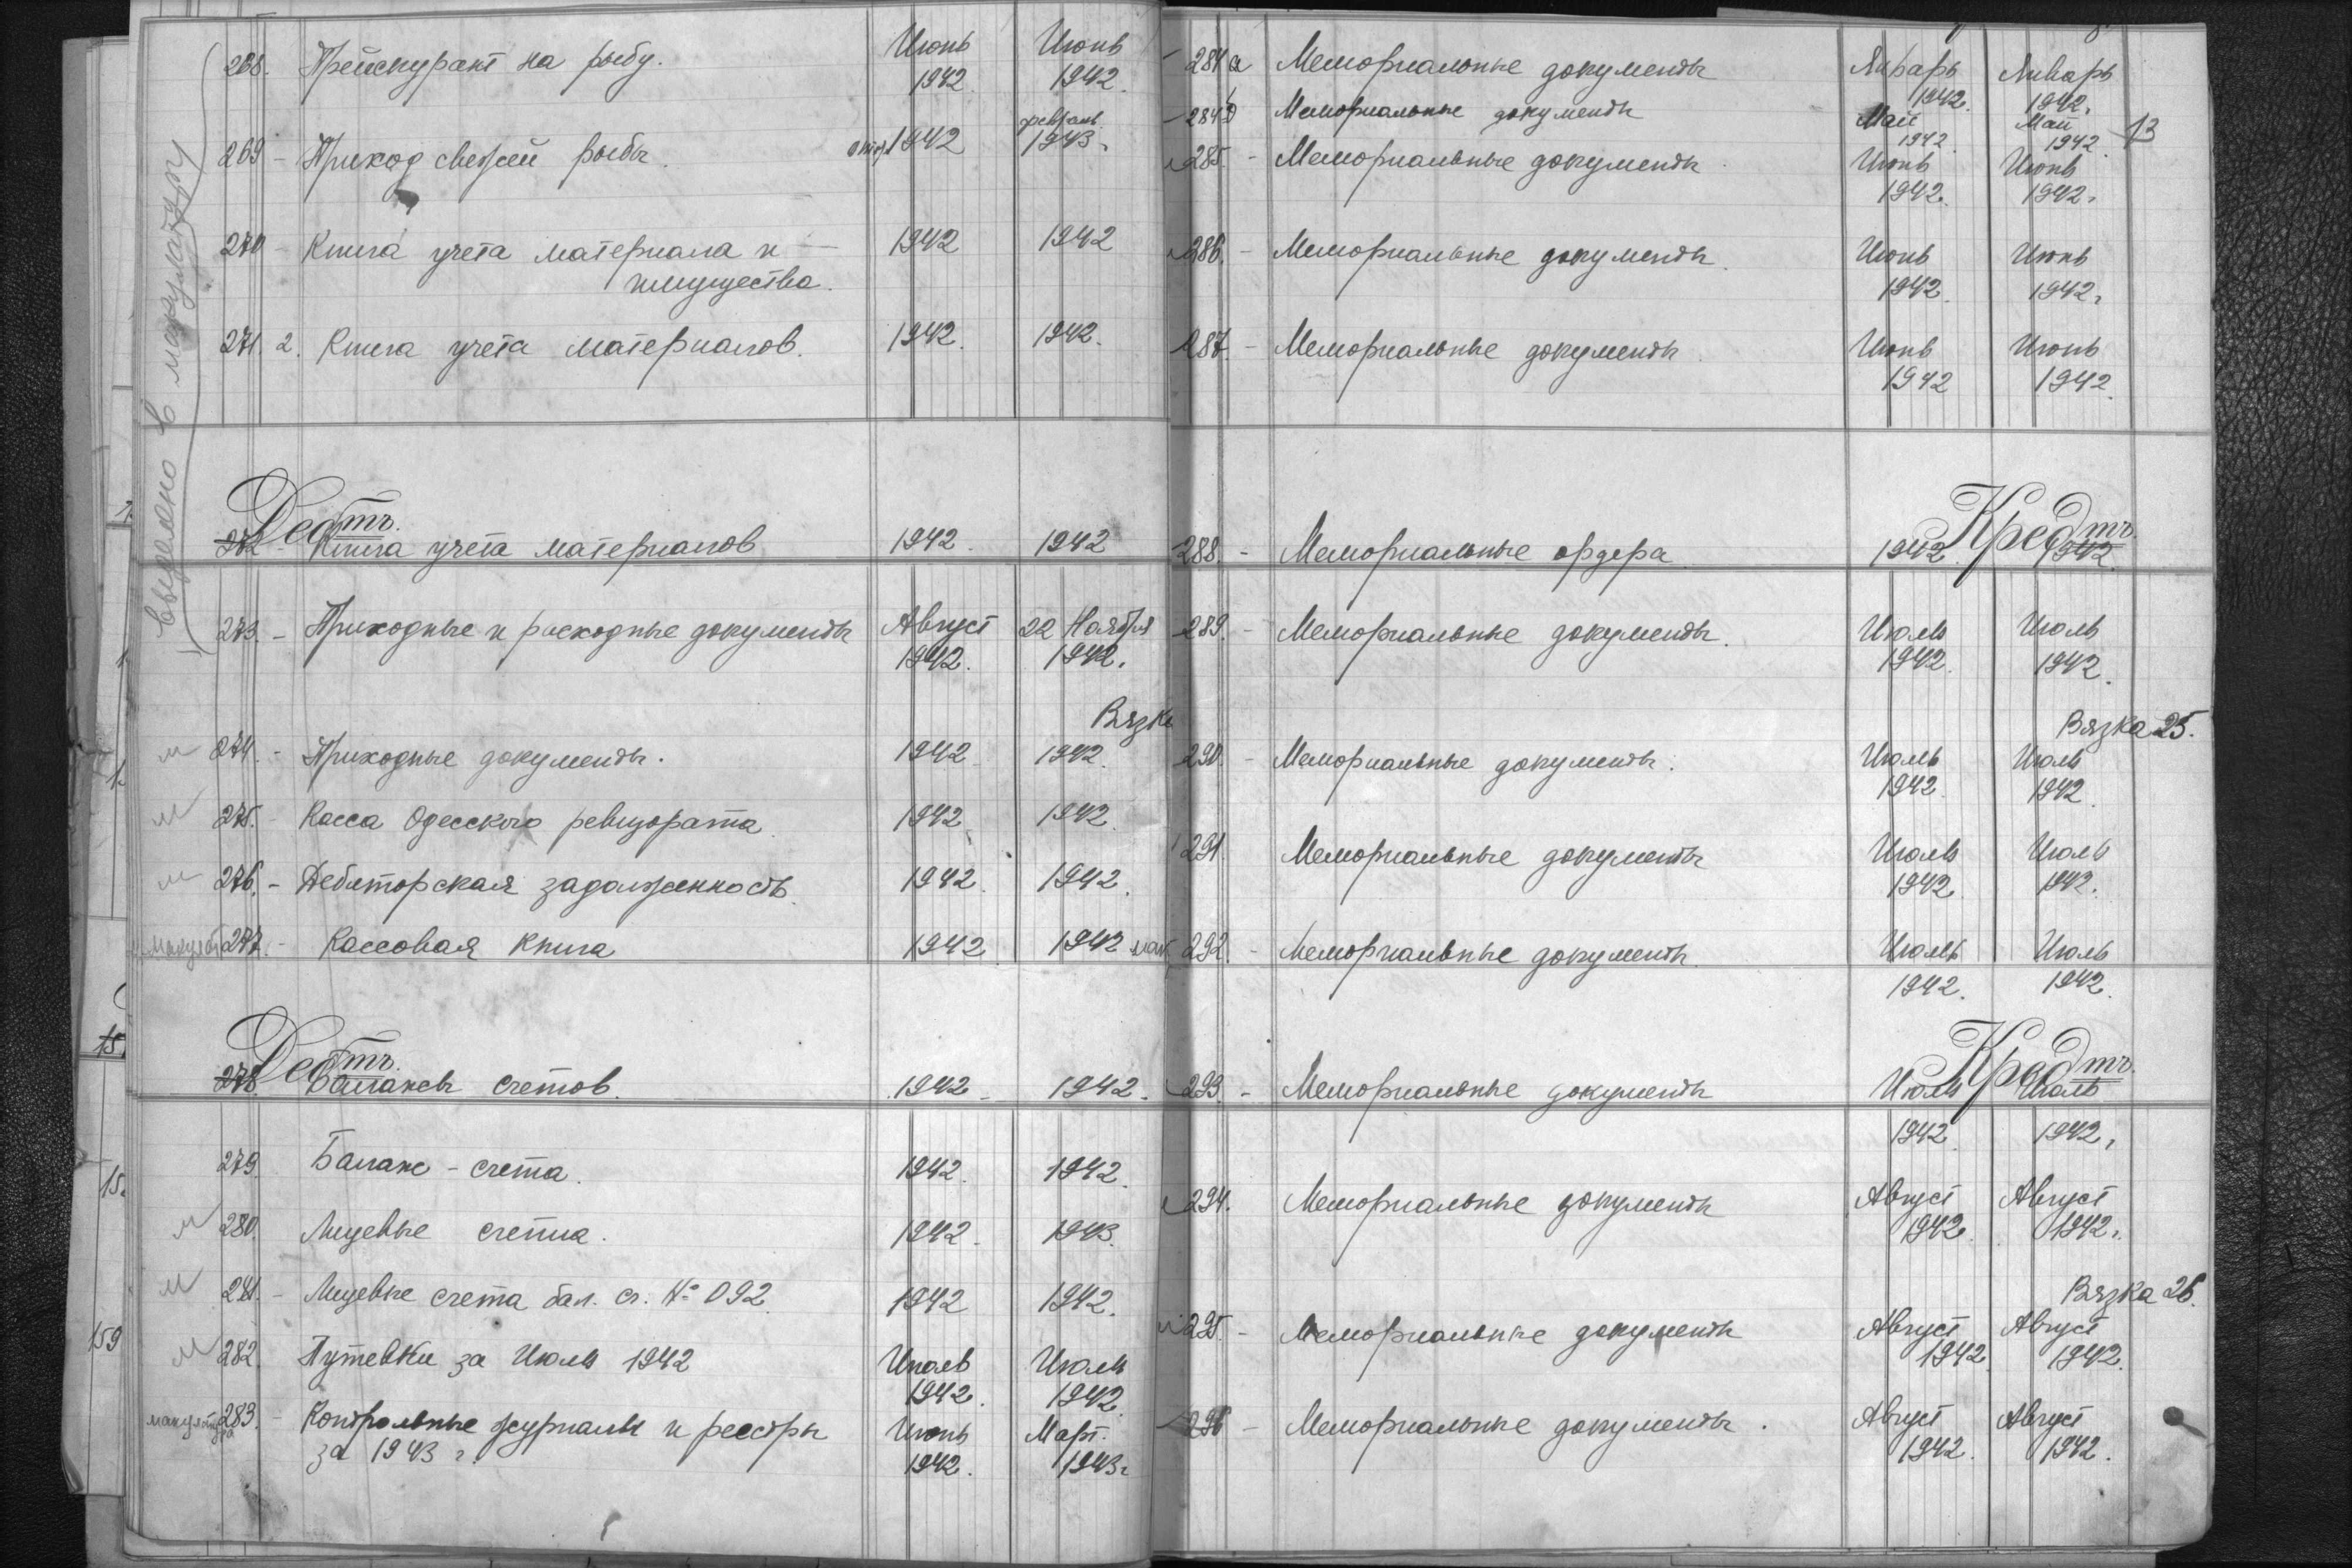 выделено в макулатуру
268. Прейскурант на рыбу. Июнь Июнь
1942. 1942.
февраль
269 - Приход свежей рыбы. 1942 1943.
270 - Книга учета материала и — 1942 1942
имущества.
271. 2. Книга учета материалов. 1942. 1942.
Дебтъ.
272 - Книга учета материалов 1942. 1942
273. - Приходные и расходные документы Август 22 Ноября
1942. 1942.
Вязка
м 274. - Приходные документы. 1942 1942.
м 275. - Касса Одесского ревизората. 1942 1942.
м 276. - Дебиторская задолженность. 1942. 1942.
макулат 277. - Кассовая книга 1942. 1942 мак
Дебтъ.
278. Балансы счетов. 1942 - 1942.
279. Баланс - счета. 1942. 1942.
м 280. Лицевые счета. 1942. 1943.
м 281. - Лицевые счета бал. сч. № 092 1942 1942.
м 282. Путевки за Июль 1942 Июль Июль
1942. 1942.
макулатура 283. - Контрольные журналы и реестры Июнь Март.
за 1943 г. 1942. 1943г
284 а Мемориальные документы Январь Январь
1942. 1942.
284 Мемориальные документы Май Май 13
1942. 1942.
285. - Мемориальные документы. Июнь Июнь
1942. 1942.
286. - Мемориальные документы. Июнь Июнь
1942. 1942.
287. - Мемориальные документы. Июнь Июнь
1942 1942.
Кредтъ.
288. - Мемориальные ордера 1942. 1942.
289. - Мемориальные документы. Июль Июль
1942. 1942.
Вязка 25.
290. - Мемориальные документы. Июль Июль
1942. 1942.
291. Мемориальные документы Июль Июль
1942. 1942.
292. - Мемориальные документы. Июль Июль
1942. 1942.
Кредтъ.
293. - Мемориальные документы Июль Июль
1942. 1942.
294. Мемориальные документы Август Август
1942. 1942.
Вязка 26.
295. - Мемориальные документы Август Август
1942. 1942.
296 - Мемориальные документы. Август Август
1942. 1942.